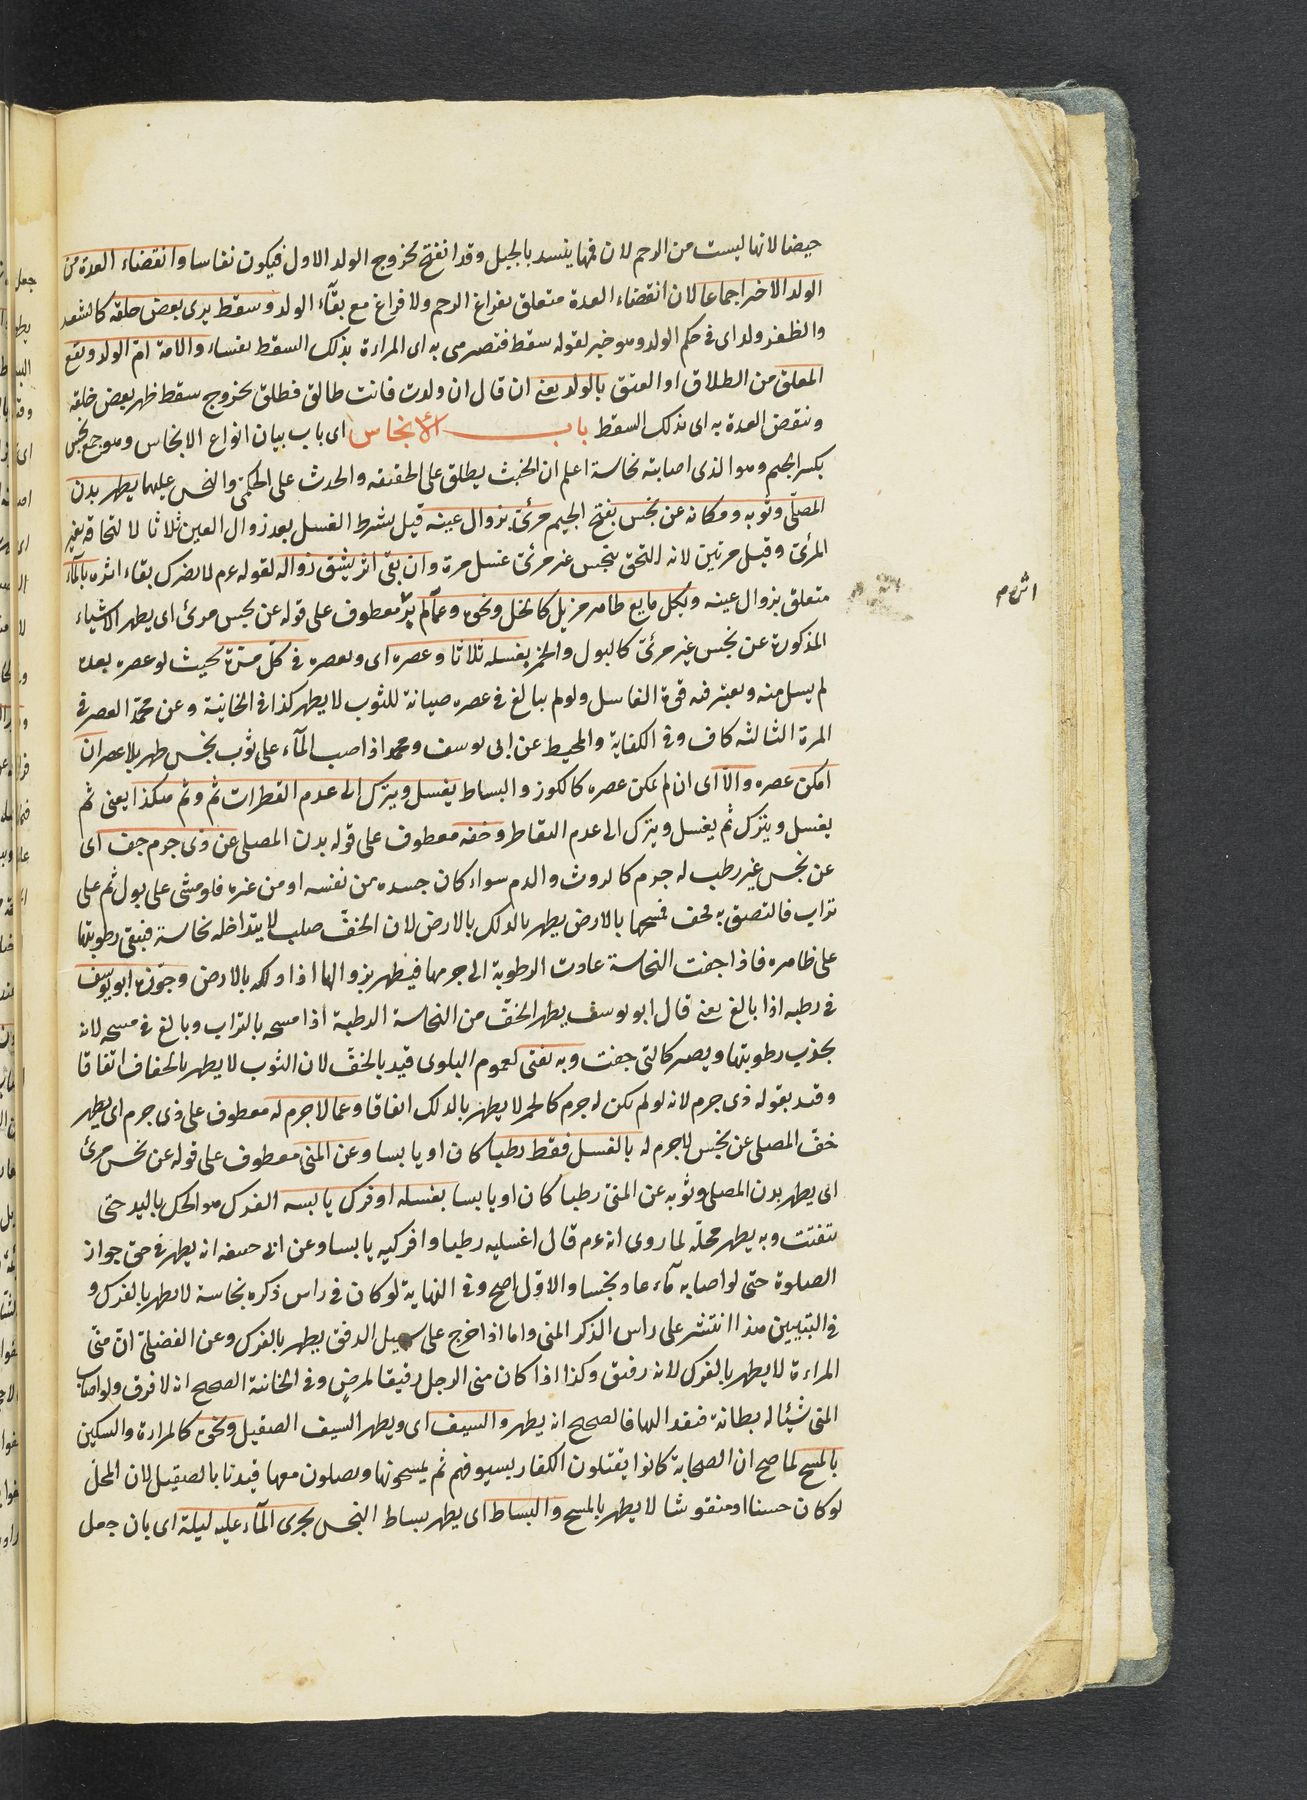 حيضا لانها ليست من الرحم لان فمها ينسد بالحبل وقد انفتح بخروج الولد الاول فيكون نفاسا وانقضاء العدة من
الولد الاخر اجماعا لان انقضاء العدة متعلق بفراغ الرحم ولا فراغ مع بقاء الولد وسقط يرى بعض خلقه كالشعر
والظفر ولد اى فى حكم الولد وهو خبر لقوله سقط فتصير هى به اى المراءة بذلك السقط نفساء والامة ام الولد ويقع
المعلق من الطلاق او العتق بالولد يعنى ان قال ان ولدت فانت طالق فطلق بخروج سقط ظهر بعض خلقه
وتنقضى العدة به اى بذلك السقط باب الانجاس اى باب بيان انواع الانجاس وهو جمع نجس
بكسر الجيم وهو الذى اصابته نجاسة اعلم ان الخبث يطلق على الحقيقى والحدث على الحكمى والنجس عليهما يطهر بدن
المصلى وثوبه ومكانه عن نجس بفتح الجيم مرئى بزوال عينه قيل يشرط الغسل بعد زوال العين ثلاثا لالتحاقه بغير
المرئى وقيل مرتين لانه التحق بنجس غير مرئى غسل مرة وان بقى اثر يشق زواله لقوله عم لا يضرك بقاء اثره بالماء
متعلق بزوال عينه وبكل مايع طاهر مزيل كالخل ونحوه وعما لم ير معطوف على قوله عن نجس مرئ اى يطهر الاشياء
اش م
المذكورة عن نجس غير مرئى كالبول والخمر بغسله ثلاثا وعصره اى وبعصره فى كل مرة بحيث لو عصره بعده
لم يسل منه ويعتبر فيه قوة الغاسل ولو لم يبالغ فى عصره صيانة للثوب لا يطهر كذا فى الخانية وعن محمد العصر فى
المرة الثالثه كاف وفى الكفاية والمحيط عن ابى يوسف ومحمد اذا صب الماء على ثوب نجس طهر بلا عصر ان
امكن عصره والا اى ان لم يمكن عصره كالكوز والبساط يغسل ويترك الى عدم القطرات ثم وثم هكذا يعنى ثم
يغسل ويترك ثم يغسل ويترك الى عدم التقاطر وخفه معطوف على قوله بدن المصلى عن ذى جرم جف اى
عن نجس غير رطب له جرم كالروث والدم سواء كان جسده من نفسه او من غيره فلو مشى على بول ثم على
تراب فالتصق به فجف فمسحها بالارض يطهر بالدلك بالارض لان الخف صلب لا يتداخله نجاسة فيبقى رطوبتها
على ظاهره فاذا جفت النجاسة عادت الرطوبة الى جرمها فيطهر بزوالها اذا دلكه بالارض وجوزه ابو يوسف
فى رطبه اذا بالغ يعنى قال ابو يوسف يطهر الخف من النجاسة الرطبة اذا مسحه بالتراب وبالغ فى مسحه لانه
يجذب رطوبتها ويصير كالتى جفت وبه يفتى لعموم البلوى قيد بالخف لان الثوب لا يطهر بالجفاف اتفاقا
وقيد بقوله ذى جرم لانه لو لم يكن له جرم كالخمر لا يطهر بالدلك اتفاقا وعما لا جرم له معطوف على ذى جرم اى يطهر
خف المصلى عن نجس لا جرم له بالغسل فقط رطبا كان او يابسا وعن المنى معطوف على قوله عن نجس مرئ
اى يطهر بدن المصلى وثوبه عن المنى رطبا كان او يابسا بغسله او فرك يابسه الفرك هو الحك باليد حتى
يتفتت وبه يطهر محله لما روى انه عم قال اغسليه رطبا وافركيه يابسا وعن ابى حنيفه انه يطهر فى حق جواز
الصلوة حتى لو اصابه ماء عاد نجسا والاول اصح وفى النهاية لو كان فى راس ذكره نجاسة لا يطهر بالفرك و
فى التبيين هذا انتشر على راس الذكر المنى واما اذا خرج على سبيل الدفق يطهر بالفرك وعن الفضلى ان منى
المراءة لا يطهر بالفرك لانه رقيق وكذا اذا كان منى الرجل رقيقا لمرض وفى الخانية الصحيح انه لا فرق ولو اصاب
المنى شيئا له بطانة فنفد اليها فالصحيح انه يطهر والسيف اى ويطهر السيف الصقيل ونحوه كالمراءة والسكين
بالمسح لما صح ان الصحابة كانوا يقتلون الكفار بسيوفهم ثم يمسحونها ويصلون معها قيدنا بالصقيل لان المحل
لو كان خشنا او منقوشا لا يطهر بالمسح والبساط اى يطهر بساط النجس بجرى الماء عليه ليلة اى بان جعل